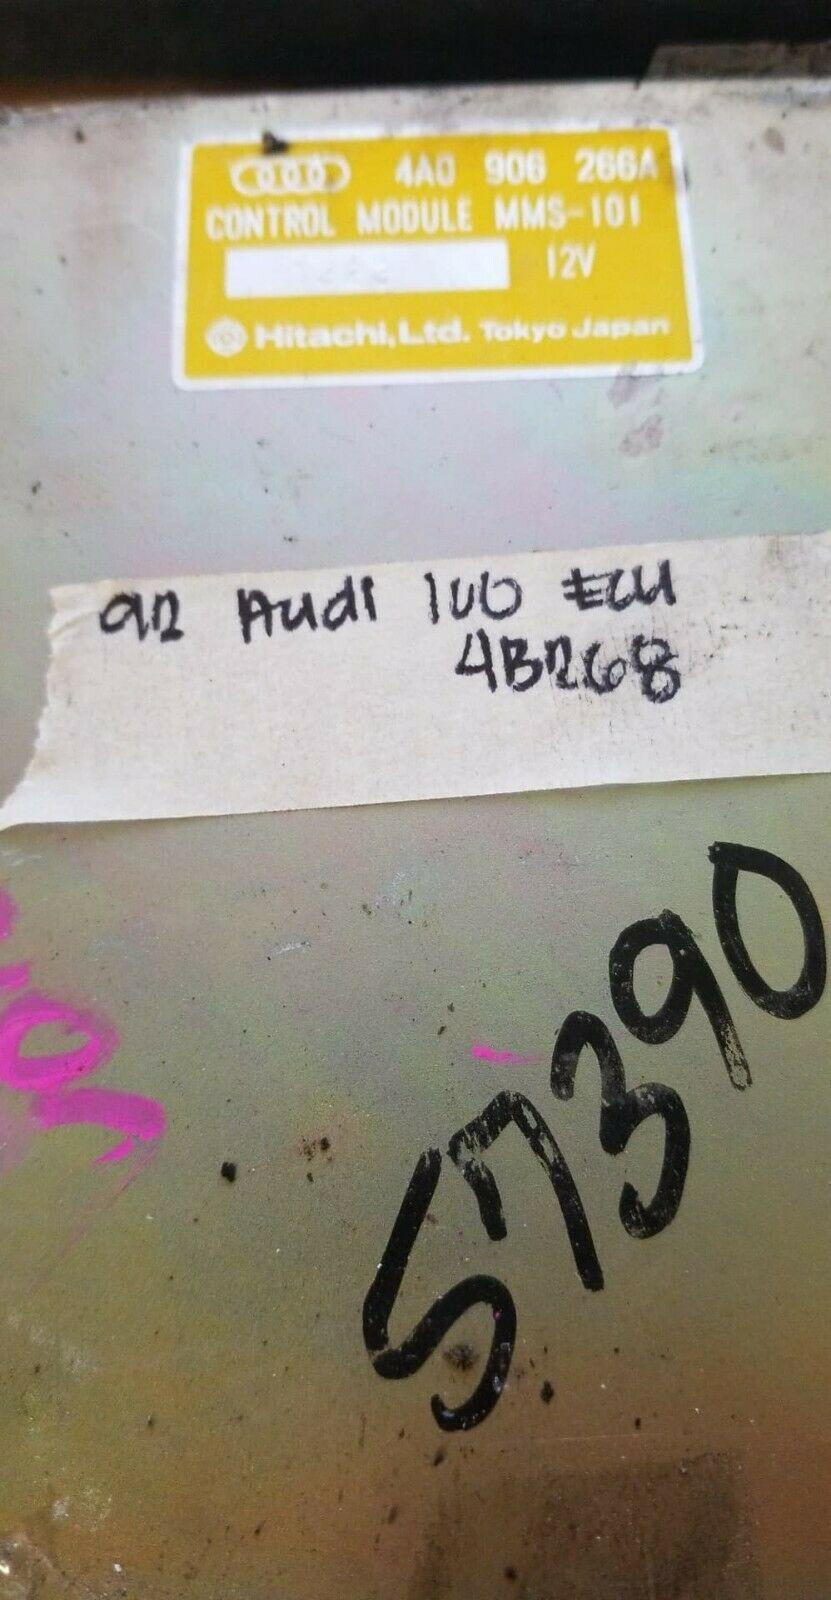 4A0 906 266A
CONTROL MODULE MMS-101
12V
Hitachi, Ltd. Tokyo Japan
92 Audi 100 ECU
4B268
57390